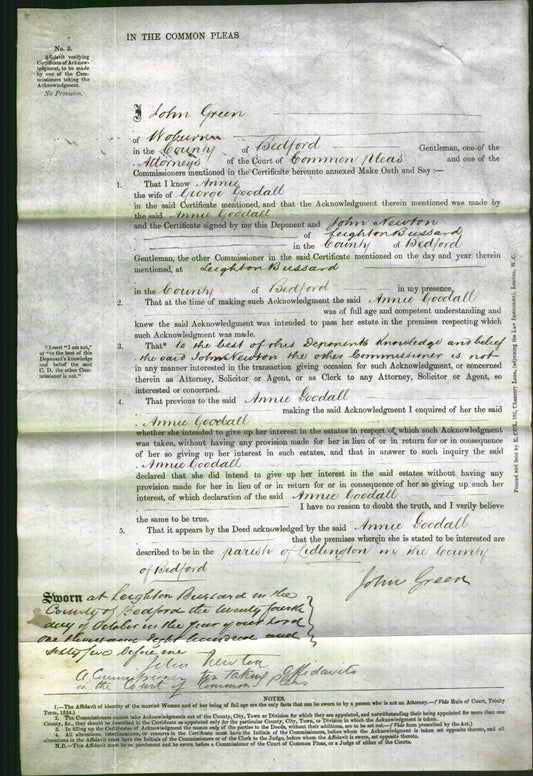 IN THE COMMON PLEAS
No. 3.
Affidavit verifying
Certificate of Acknow-
ledgment, to be made
by one of the Com-
missioners taking the
Acknowledgment.
No Provision.
I John Green
of Woburn
in the County of Bedford Gentleman, one of the
Attorneys of the Court of Common Pleas and one of the
Commissioners mentioned in the Certificate hereunto annexed Make Oath and Say :—
1. That I know Annie
the wife of George Goodall
in the said Certificate mentioned, and that the Acknowledgment therein mentioned was made by
the said Annie Goodall
and the Certificate signed by me this Deponent and John Newton
of Leighton Bussard
in the County of Bedford
Gentleman, the other Commissioner in the said Certificate mentioned on the day and year therein
mentioned, at Leighton Bussard
in the County of Bedford in my presence,
2. That at the time of making such Acknowledgment the said Annie Goodall
was of full age and competent understanding and
knew the said Acknowledgment was intended to pass her estate in the premises respecting which
such Acknowledgment was made.
* Insert "I am not,"
or "to the best of this
Deponent's knowledge
and belief the said
C. D. the other Com-
missioner is not."
3. That* to the best of this Deponents knowledge and belief
the said John Newton the other Commissioner is not
in any manner interested in the transaction giving occasion for such Acknowledgment, or concerned
therein as Attorney, Solicitor or Agent, or as Clerk to any Attorney, Solicitor or Agent, so
interested or concerned.
4. That previous to the said Annie Goodall
making the said Acknowledgment I enquired of her the said
Annie Goodall
whether she intended to give up her interest in the estates in respect of which such Acknowledgment
was taken, without having any provision made for her in lieu of or in return for or in consequence
of her so giving up her interest in such estates, and that in answer to such inquiry the said
Annie Goodall
declared that she did intend to give up her interest in the said estates without having any
provision made for her in lieu of or in return for or in consequence of her so giving up such her
interest, of which declaration of the said Annie Goodall
I have no reason to doubt the truth, and I verily believe
the same to be true.
5. That it appears by the Deed acknowledged by the said Annie Goodall
that the premises wherein she is stated to be interested are
described to be in the parish of Lidlington in the County
of Bedford
John Green
Sworn at Leighton Bussard in the
County of Bedford the twenty fourth
day of October in the year of our Lord
one thousand eight hundred and
sixty two before me
John Newton
A Commissioner for taking Affidavits
in the Court of Common Pleas
Printed and sold by E. COX, 102, Chancery Lane, (adjoining the Law Institution), London, W.C.
NOTES.
1.—The Affidavit of identity of the married Woman and of her being of full age are the only facts that can be sworn to by a person who is not an Attorney.—(Vide Rule of Court, Trinity
Term, 1834.)
2. The Commissioners cannot take Acknowledgments out of the County, City, Town or Division for which they are appointed, and notwithstanding their being appointed for more than one
County, &c., they should be described in the Certificate as appointed only for the particular County, City, Town, or Division in which the Acknowledgment is taken.
3. In filling up the Certificate of Acknowledgment the names only of the parties to the Deeds, without their additions, are to be set out.—(Vide form prescribed by the Act.)
4. All alterations, interlineations, or erasures in the Certificate must have the Initials of the Commissioners, before whom the Acknowledgment is taken set opposite thereto, and all
alterations in the Affidavit must have the Initials of the Commissioner or of the Clerk to the Judge, before whom the Affidavit is sworn, set opposite thereto.
N.B.—This Affidavit must be on parchment and be sworn before a Commissioner of the Court of Common Pleas, or a Judge of either of the Courts.